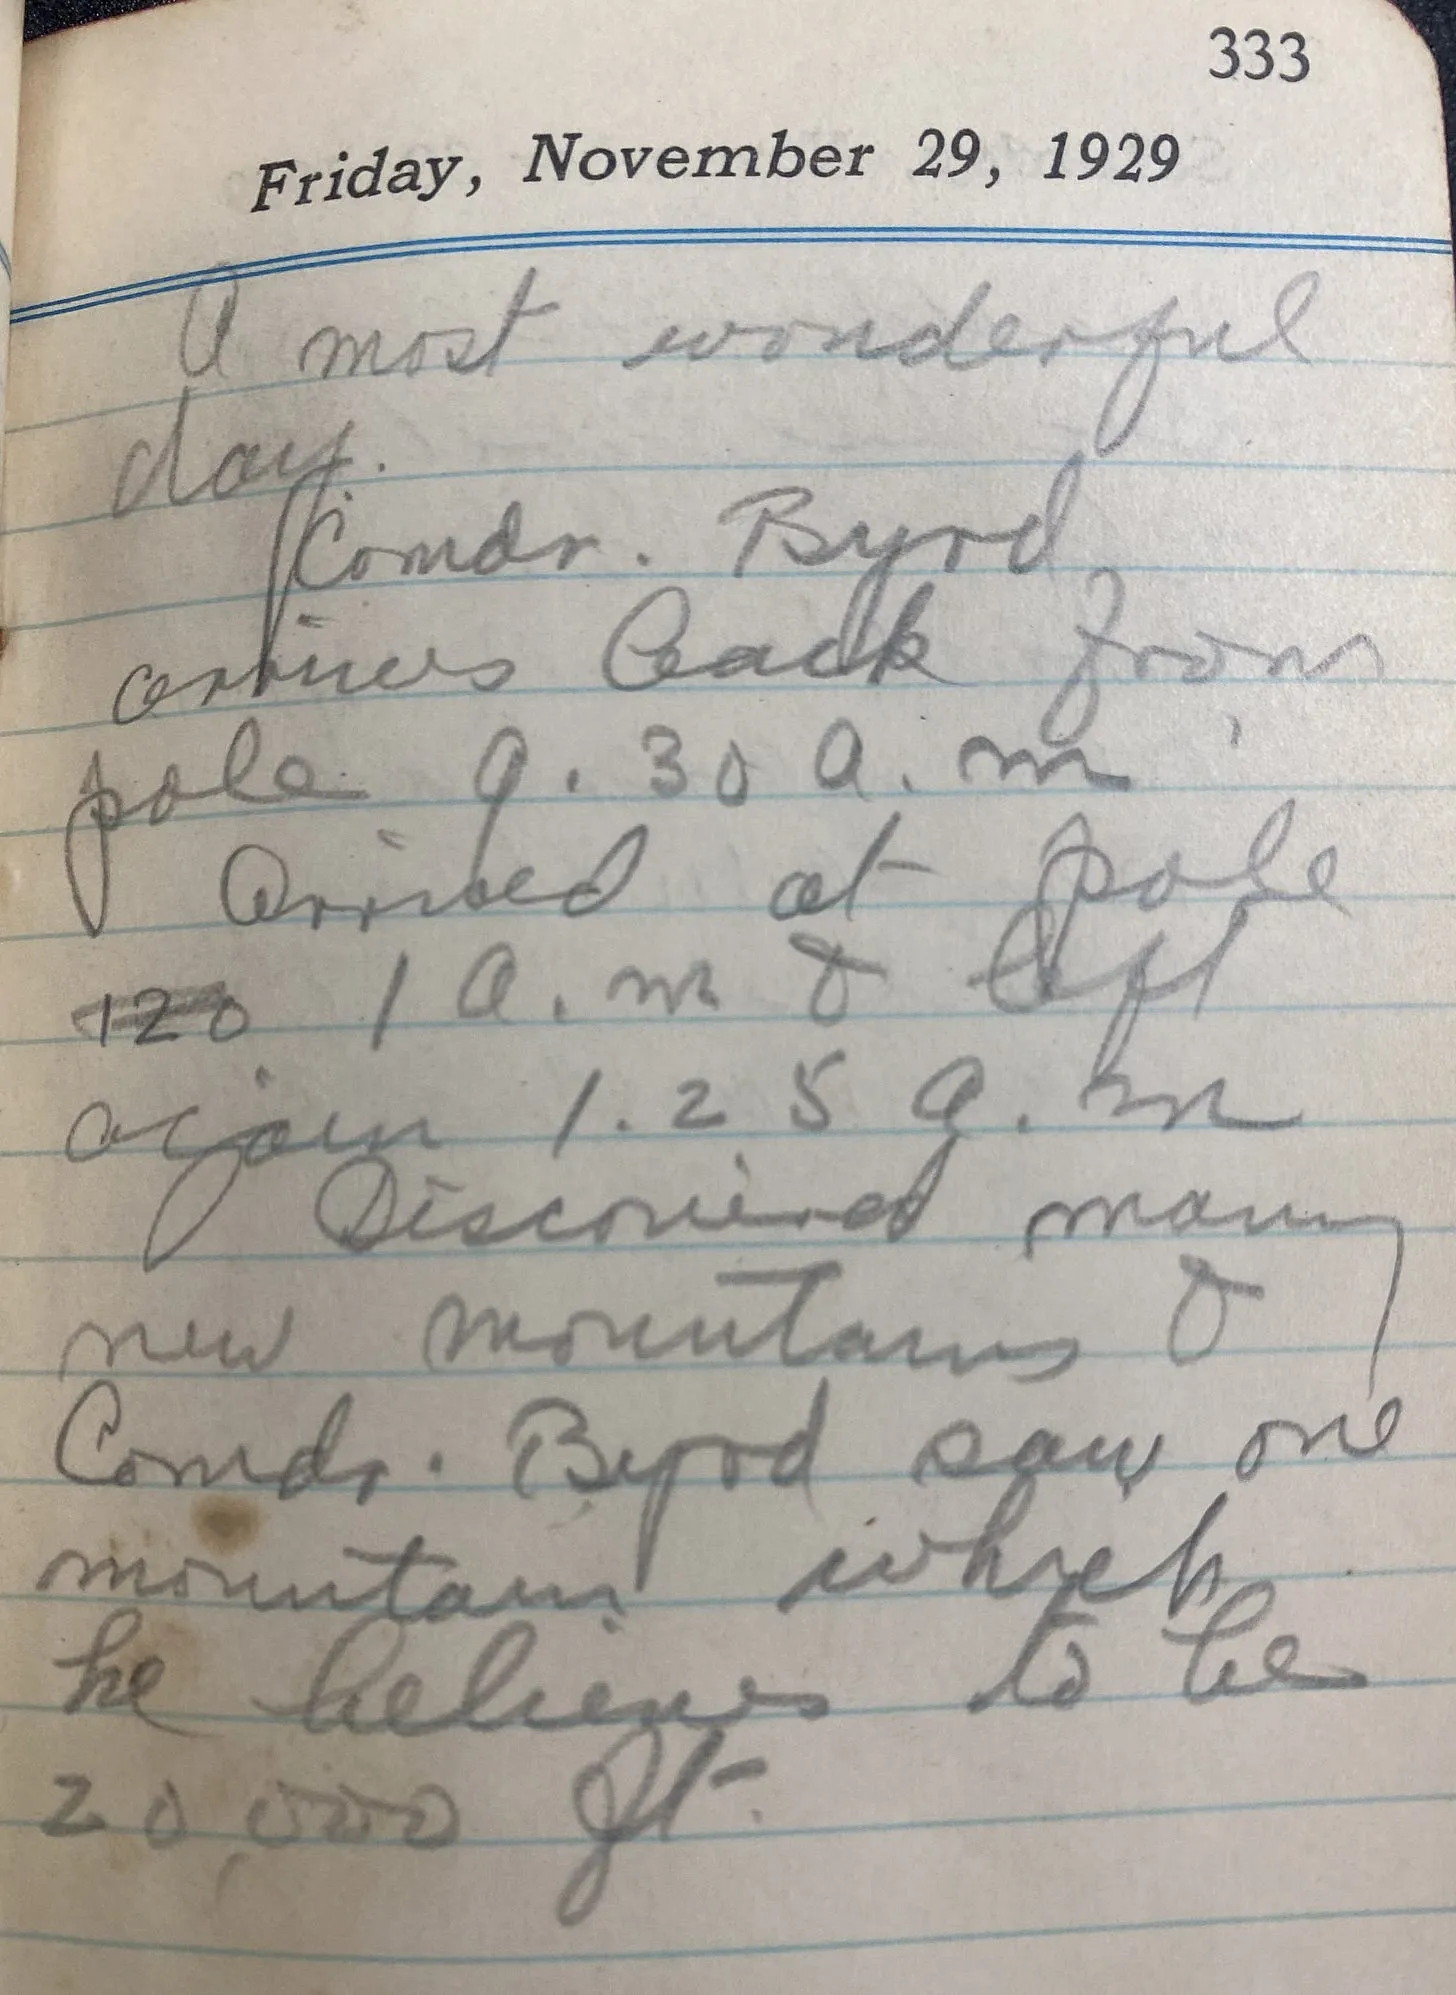 333
Friday, November 29, 1929
A most wonderful
day.
Comdr. Byrd
arrives back from
pole 9.30 a.m.
Arrived at pole
120 1 a.m & left
again 1.25 a.m
Discovered many
new mountains &
Comdr. Byrd saw one
mountain which
he believes to be
20,000 ft.